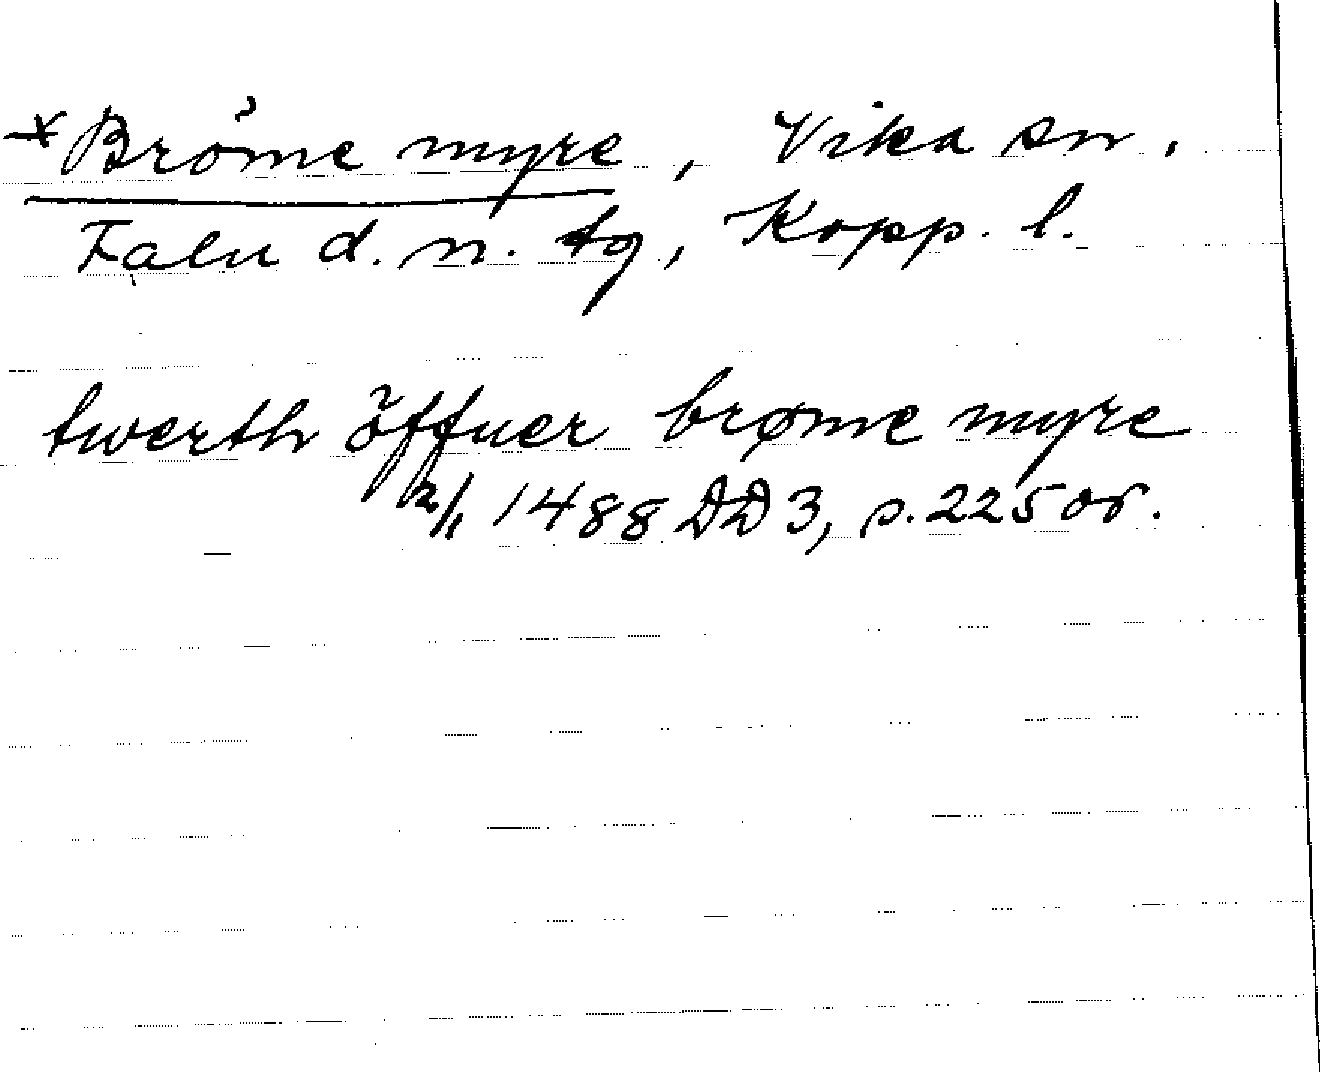 *Bröme myre, Vika sn,
Falu d. n. tg, Kopp. l.
twerth öffuer brøme myre
2/1 1488 DD 3, s. 225 or.